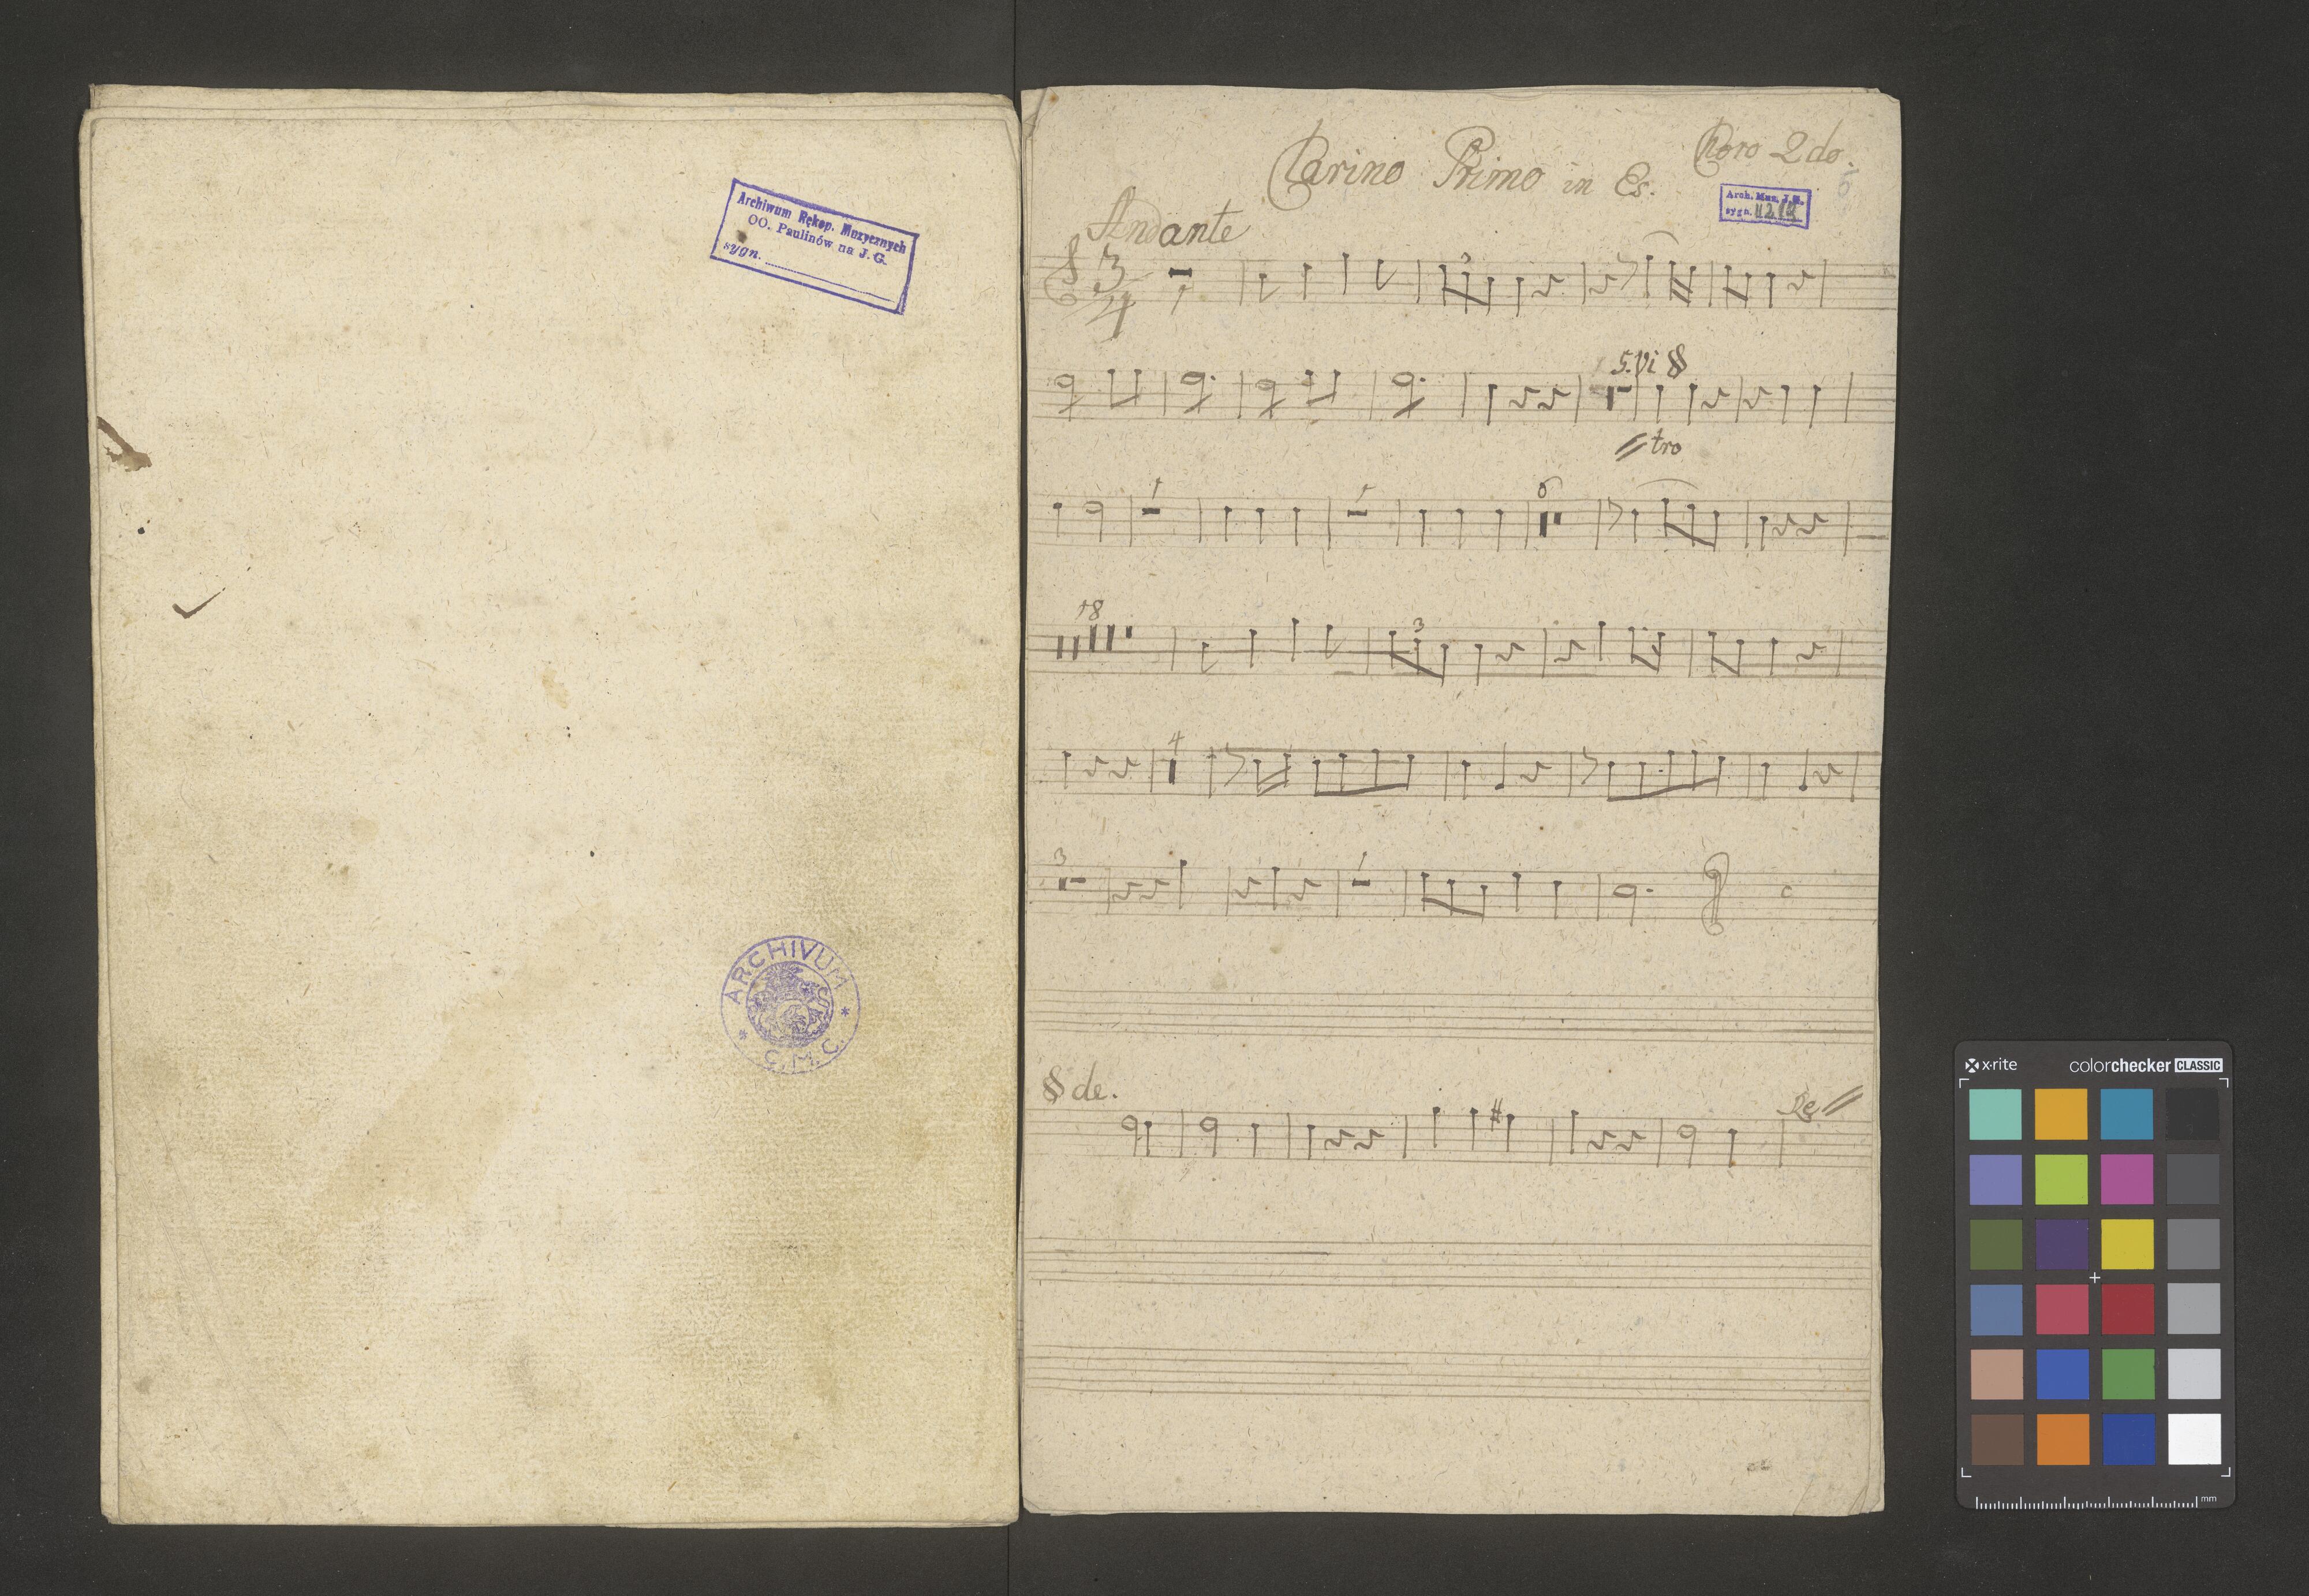 Archiwum Rękop. Muzycznych
OO. Paulinów na J. G.
sygn.
ARCHIVUM
C. M. C.
Clarino Primo in Es.
Choro 2do.
Arch. Muz. J. G.
sygn.
Andante
3
4
1
3
5. Vi §
tro
1
1
6
18
3
4
3
1
§ de.
x-rite
colorchecker CLASSIC
mm